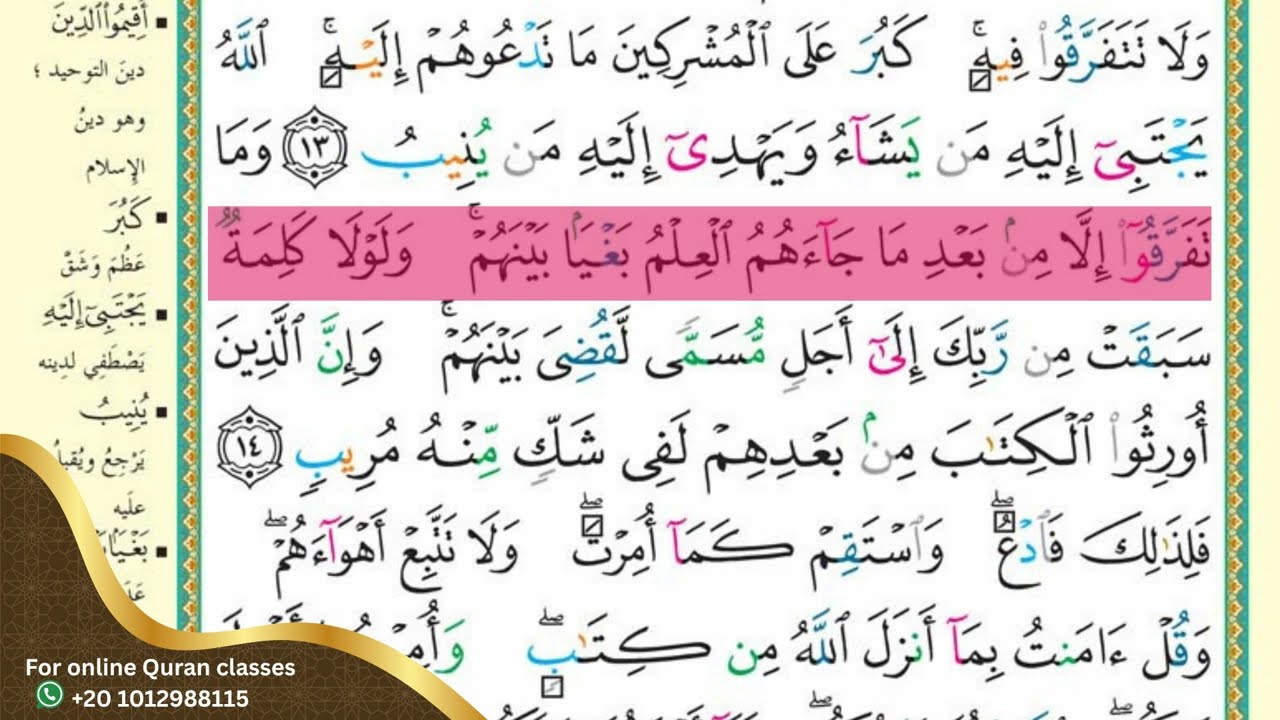 وَلَا تَتَفَرَّقُوا۟ فِيهِ ۚ كَبُرَ عَلَى ٱلْمُشْرِكِينَ مَا تَدْعُوهُمْ إِلَيْهِ ۚ ٱللَّهُ
يَجْتَبِىٓ إِلَيْهِ مَن يَشَآءُ وَيَهْدِىٓ إِلَيْهِ مَن يُنِيبُ ١٣ وَمَا
تَفَرَّقُوٓا۟ إِلَّا مِنۢ بَعْدِ مَا جَآءَهُمُ ٱلْعِلْمُ بَغْيًۢا بَيْنَهُمْ ۚ وَلَوْلَا كَلِمَةٌ
سَبَقَتْ مِن رَّبِّكَ إِلَىٰٓ أَجَلٍ مُّسَمًّى لَّقُضِىَ بَيْنَهُمْ ۚ وَإِنَّ ٱلَّذِينَ
أُورِثُوا۟ ٱلْكِتَٰبَ مِنۢ بَعْدِهِمْ لَفِى شَكٍّ مِّنْهُ مُرِيبٍ ١٤
فَلِذَٰلِكَ فَٱدْعُ ۖ وَٱسْتَقِمْ كَمَآ أُمِرْتَ ۖ وَلَا تَتَّبِعْ أَهْوَآءَهُمْ ۖ
وَقُلْ ءَامَنتُ بِمَآ أَنزَلَ ٱللَّهُ مِن كِتَٰبٍ ۖ
▪ أَقِيمُوا الدِّينَ
دينَ التوحيد ؛
وهو دينُ
الإسلام
▪ كَبُرَ
عَظُمَ وَشَقَّ
▪ يَجْتَبِىٓ إِلَيْهِ
يَصْطَفِي لدِينه
▪ يُنِيبُ
يَرْجِعُ ويُقبلُ
علَيه
For online Quran classes
+20 1012988115